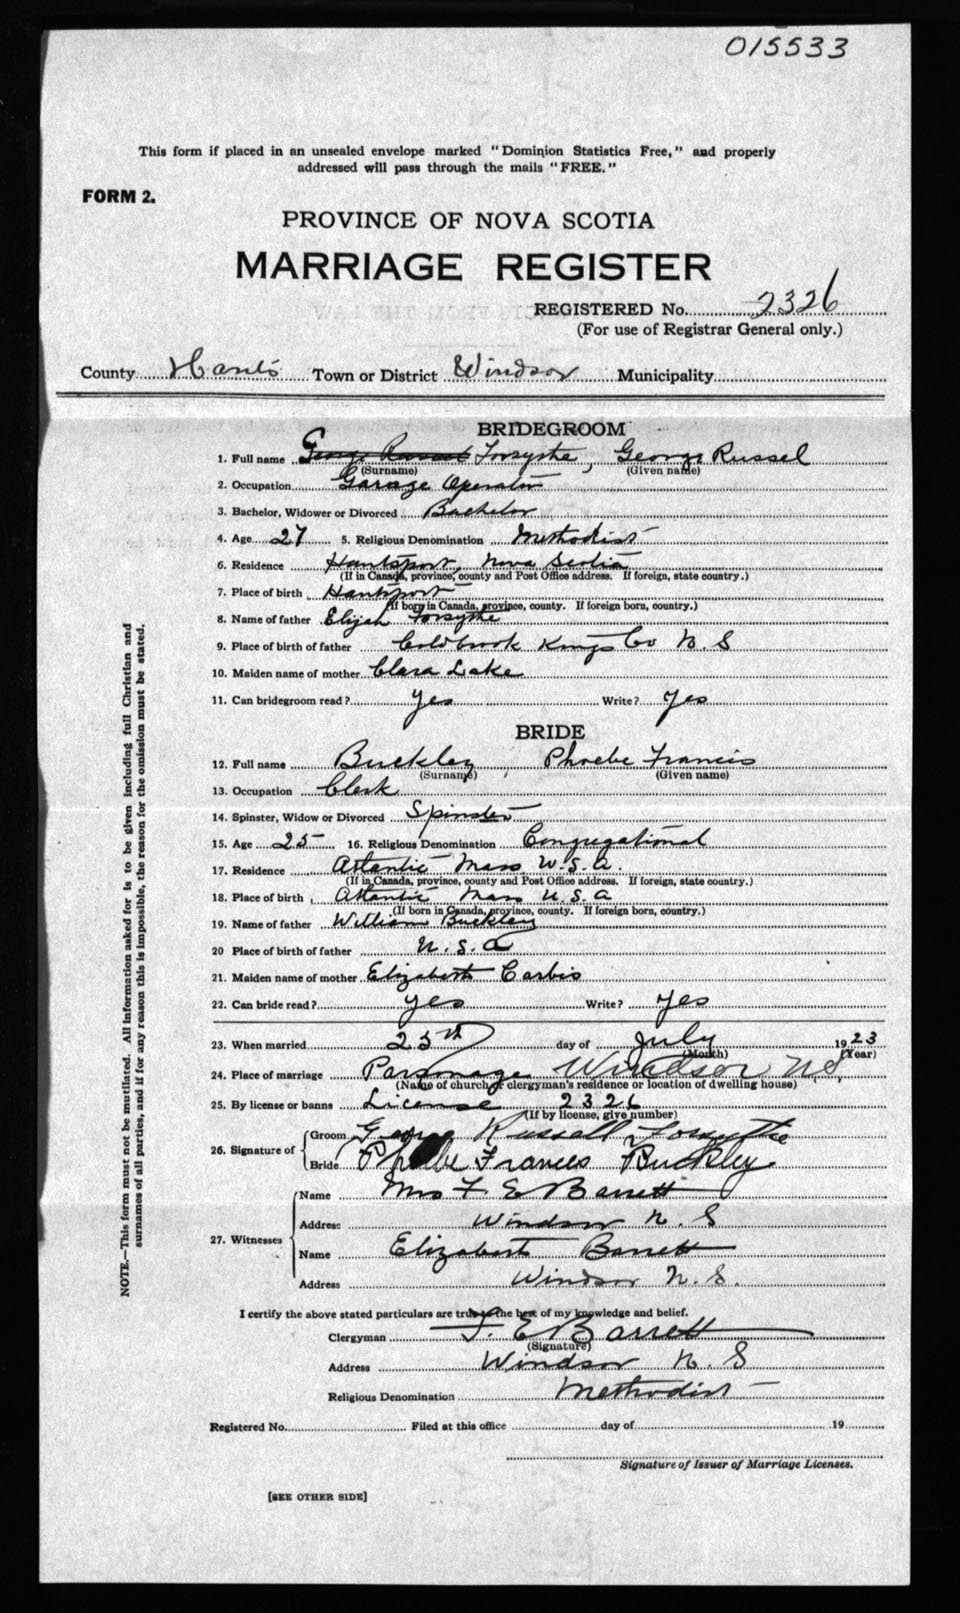 015533
This form if placed in an unsealed envelope marked "Dominion Statistics Free," and properly
addressed will pass through the mails "FREE."
FORM 2.
PROVINCE OF NOVA SCOTIA
MARRIAGE REGISTER
REGISTERED No. 2326
(For use of Registrar General only.)
County Hants Town or District Windsor Municipality
BRIDEGROOM
1. Full name George Russel Forsythe, George Russel
(Surname) (Given name)
2. Occupation Garage Operator
3. Bachelor, Widower or Divorced Bachelor
4. Age 27 5. Religious Denomination Methodist
6. Residence Hantsport, Nova Scotia
(If in Canada, province, county and Post Office address. If foreign, state country.)
7. Place of birth Hantsport
(If born in Canada, province, county. If foreign born, country.)
8. Name of father Elijah Forsythe
9. Place of birth of father Coldbrook Kings Co N. S
10. Maiden name of mother Clara Lake
11. Can bridegroom read? yes Write? yes
BRIDE
12. Full name Buckley, Phoebe Francis
(Surname) (Given name)
13. Occupation Clerk
14. Spinster, Widow or Divorced Spinster
15. Age 25 16. Religious Denomination Congregational
17. Residence Atlantic Mass U.S.a.
(If in Canada, province, county and Post Office address. If foreign, state country.)
18. Place of birth Atlantic Mass U.S.a
(If born in Canada, province, county. If foreign born, country.)
19. Name of father William Buckley
20 Place of birth of father U.S.a
21. Maiden name of mother Elizabeth Carbis
22. Can bride read? yes Write? yes
23. When married 25th day of July 1923
(Month) (Year)
24. Place of marriage Parsonage Windsor N.S.
(Name of church or clergyman's residence or location of dwelling house)
25. By license or banns License 2326
(If by license, give number)
26. Signature of Groom George Russell Forsythe
Bride Phoebe Frances Buckley
27. Witnesses Name Mrs F E Barrett
Address Windsor N. S
Name Elizabeth Barrett
Address Windsor N. S.
I certify the above stated particulars are true to the best of my knowledge and belief.
Clergyman F. E Barrett
(Signature)
Address Windsor N. S
Religious Denomination Methodist
Registered No. Filed at this office day of 19
Signature of Issuer of Marriage Licenses.
[SEE OTHER SIDE]
NOTE.—This form must not be mutilated. All information asked for is to be given including full Christian and
surnames of all parties, and if for any reason this is impossible, the reason for the omission must be stated.